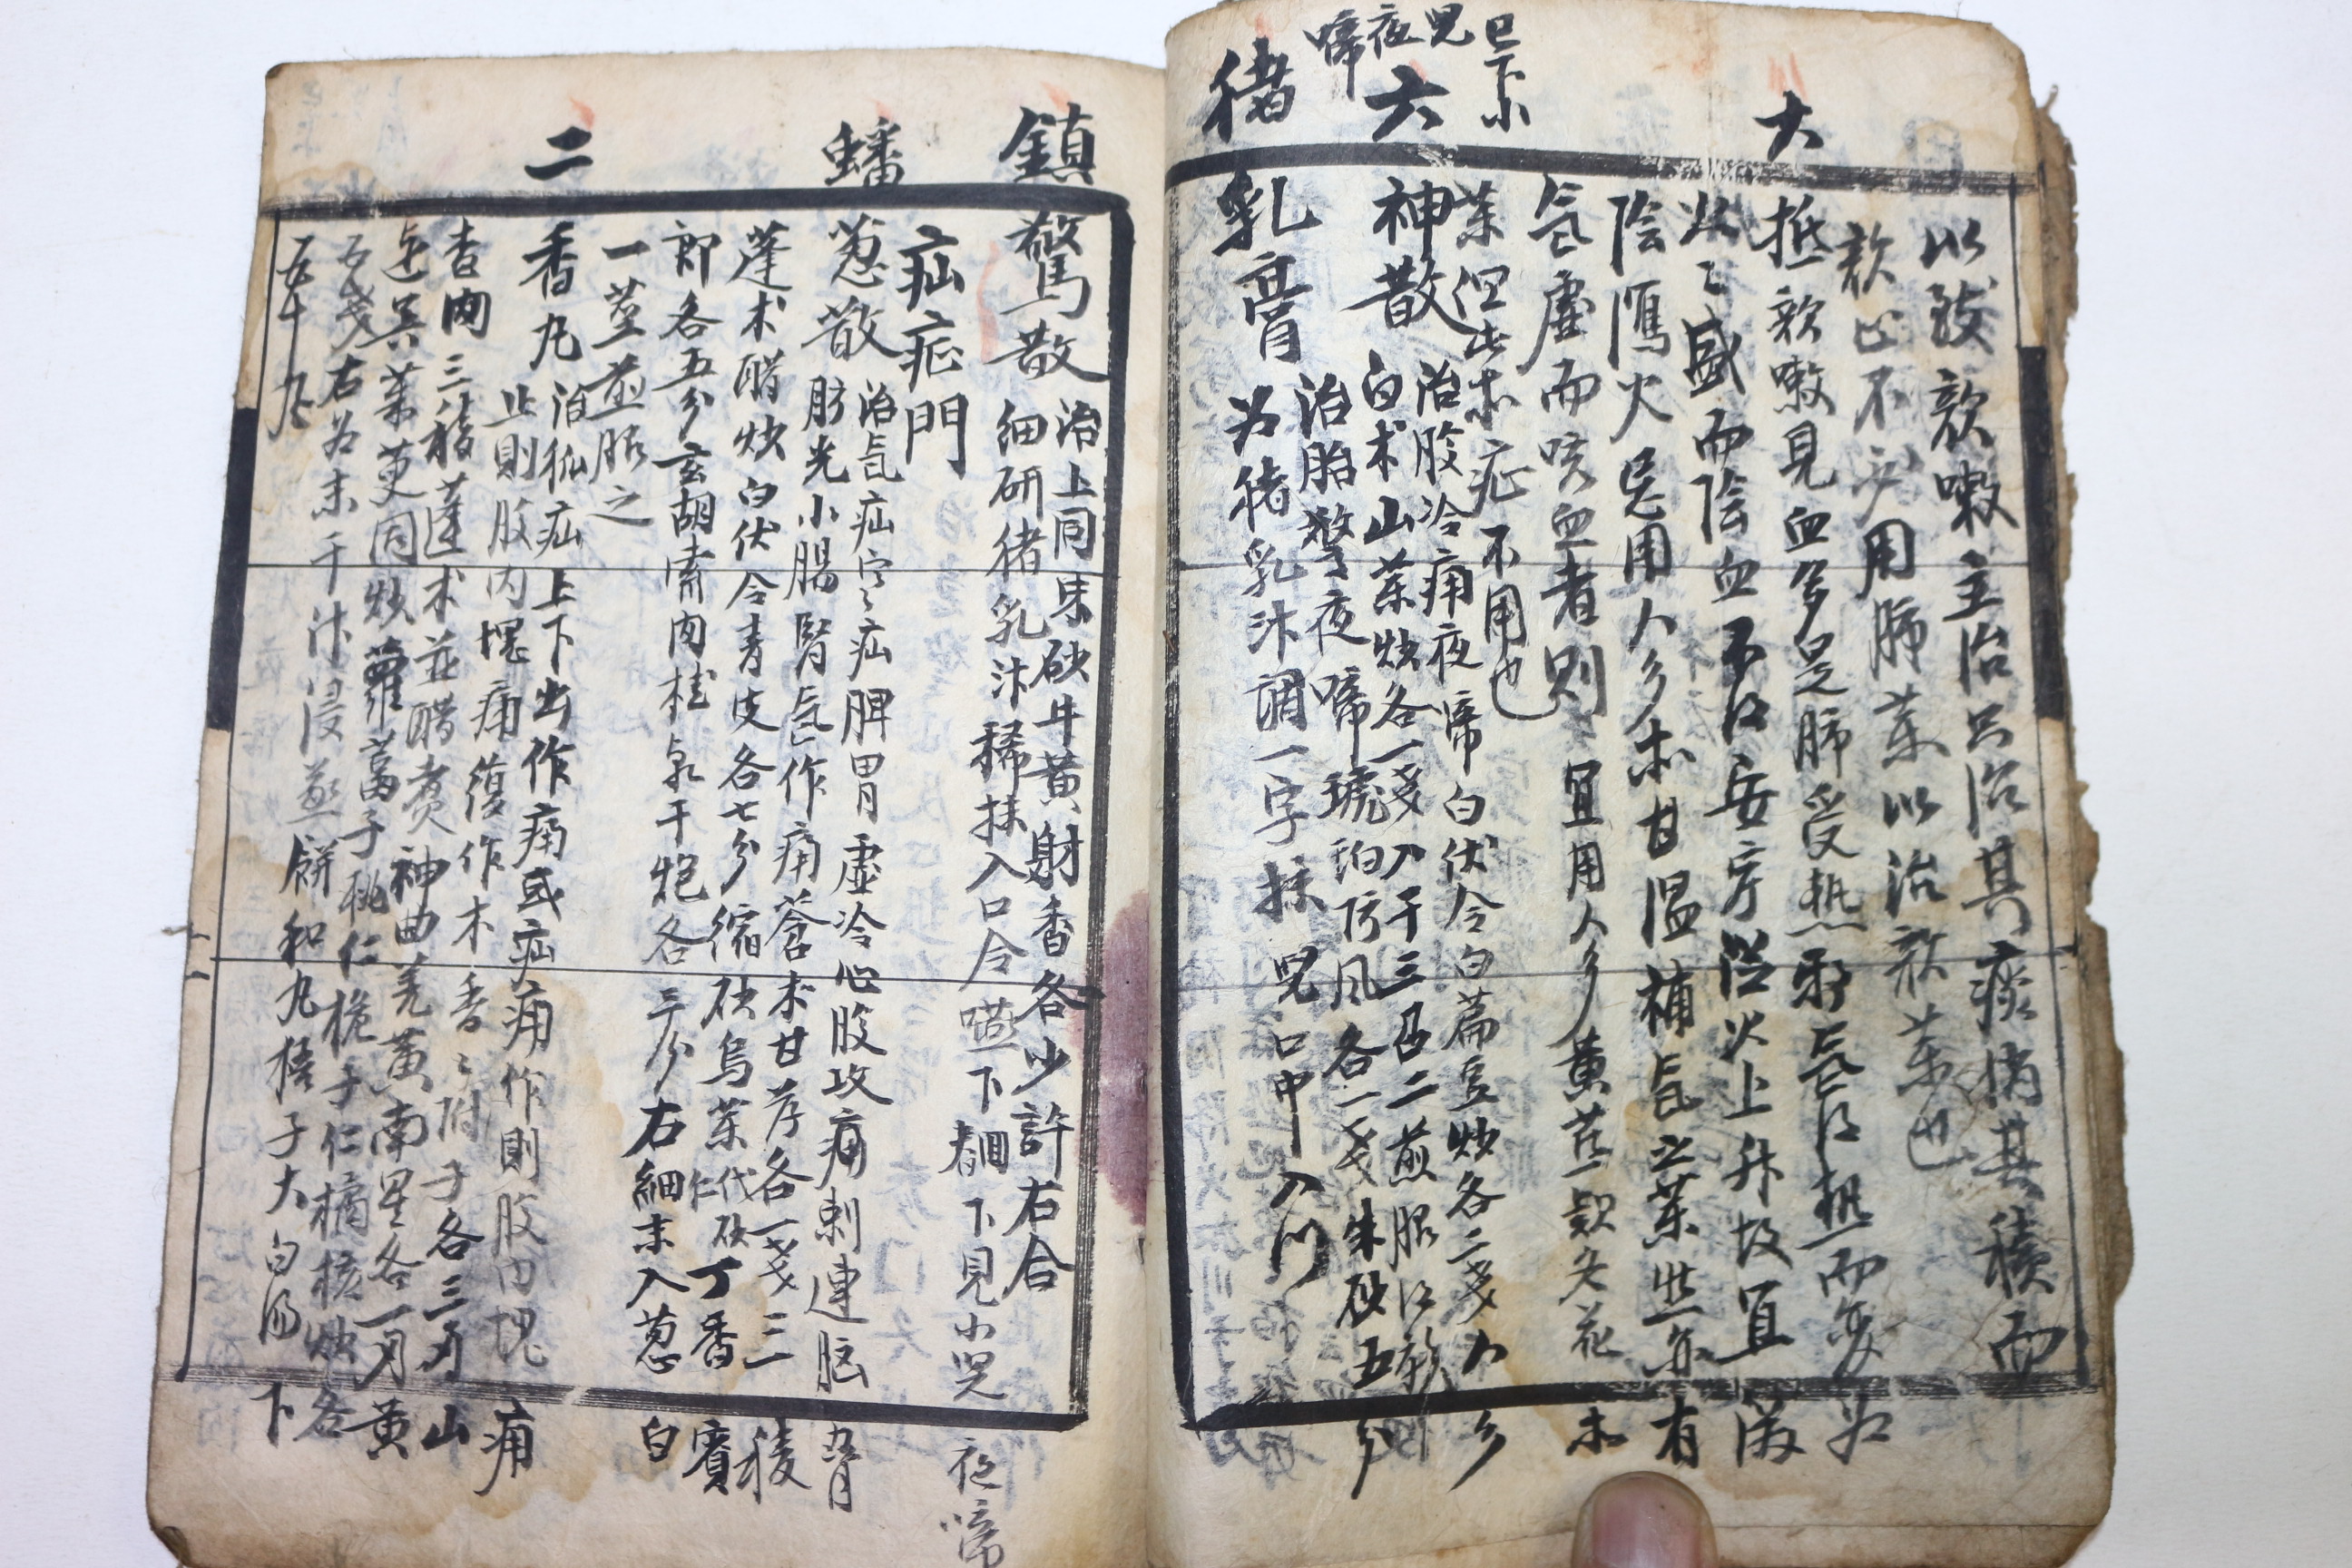 大
以致欬嗽主治只治其痰消其積而
欬止不必用肺藥以治欬藥也
抵欬嗽見血多是肺受熱邪氣得熱而変爲
火火盛而陰血不得安寧從火上升故宜瀉
陰降火忌用人參朮甘溫補气之藥然亦有
氣虛而咳血者則宜用人參黃芪款冬花
藥但此等症不用也
已下小
兒夜啼
六
神散
治腹冷痛夜啼白伏令白扁豆炒各二戔人參
白朮山藥炒各一戔入干三召二煎服
治胎驚夜啼琥珀防風各一戔朱砂五分
猪
乳膏
为猪乳汁調一字抹兒口中入門
鎮
驚散
治上同朱砂牛黃射香各少許右合
細研猪乳汁稀抹入口令嚥下 下見小兒夜啼
疝症門
蟠
葱散
治气疝宀疝脾胃虛冷心腹攻痛刺連胸脅
肪光小腸腎氣作痛蒼朮甘草各一戔三稜
蓬朮醋炒白伏令青皮各七分縮砂烏藥代仁砍丁香賓
郎各五分玄胡索肉桂泉干炮各三分右細末入葱白
一莖煎服之
二
香丸
治狐疝上下出作痛或疝痛作則腹內塊痛
止則腹內塊痛復作木香香附子各三刃山
査肉三稜蓬朮並醋煮神曲羌黃南星各一刃黃
連吳茱萸同炒蘿葍子桃仁梔子仁橘核炒各
五戔右为末干汁浸蒸餠和丸梧子大白湯下
五十丸